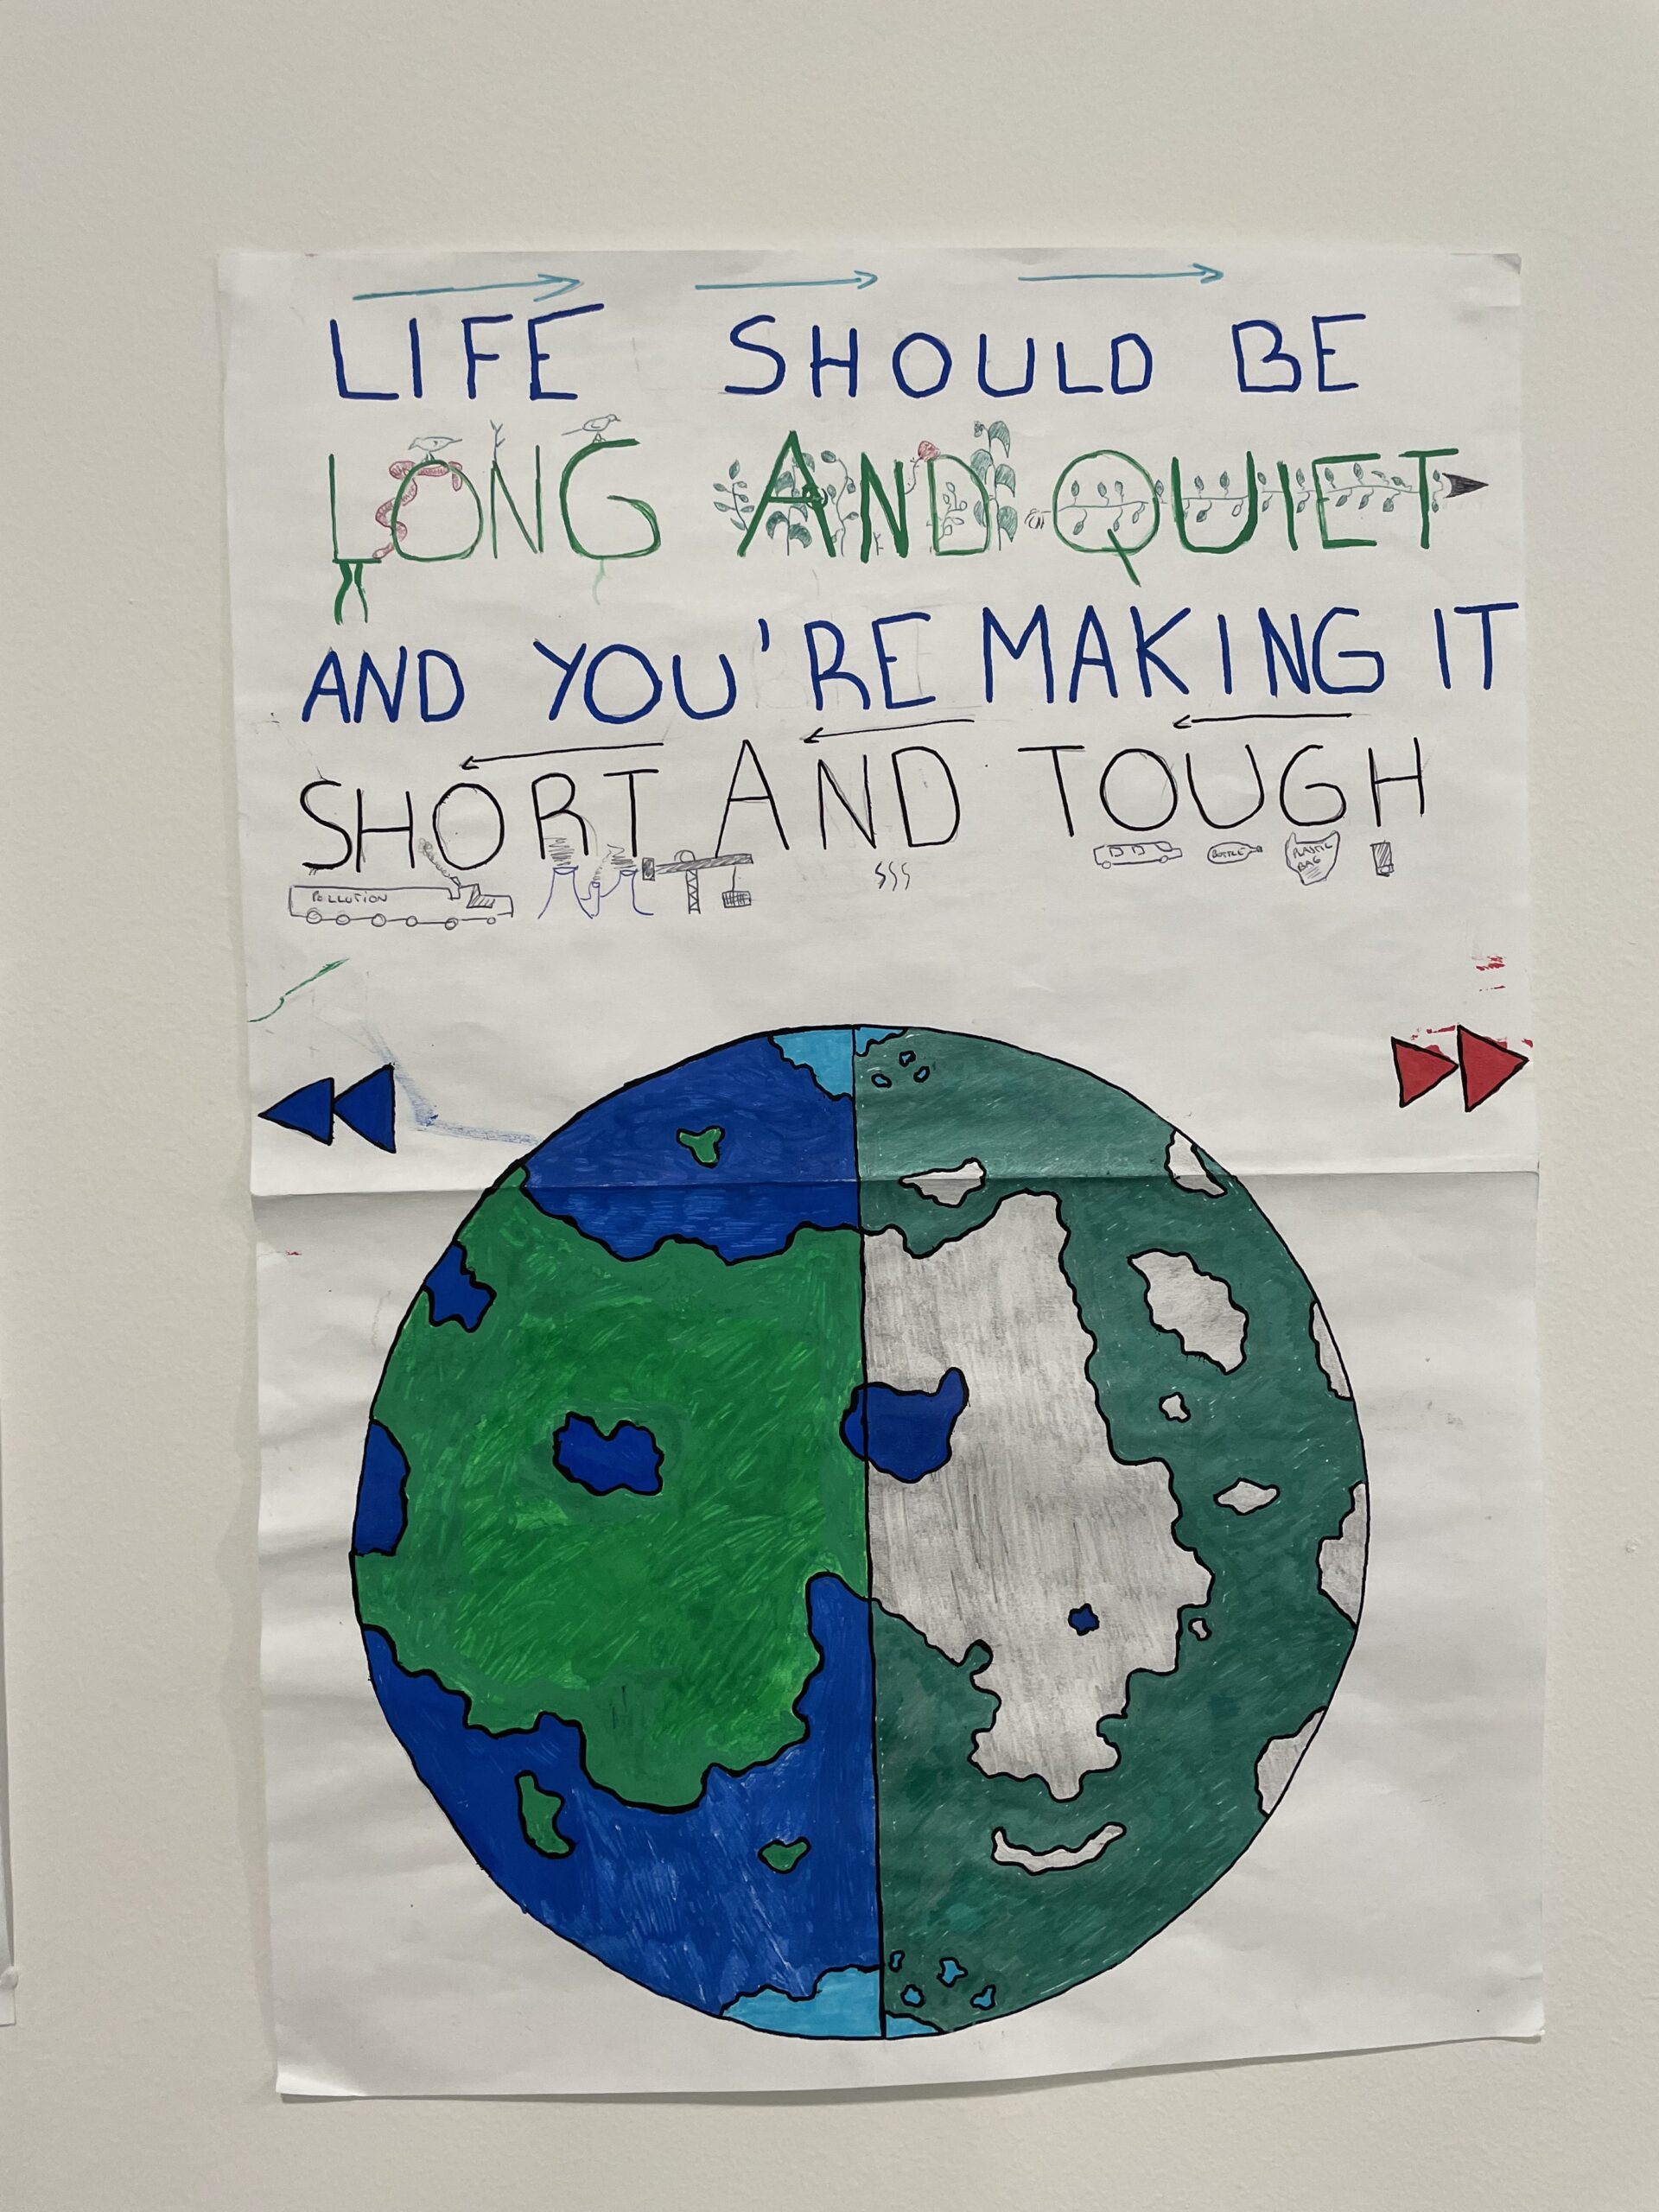 LIFE SHOULD BE
LONG AND QUIET
AND YOU'RE MAKING IT
SHORT AND TOUGH
POLLUTION
BOTTLE
PLASTIC
BAG